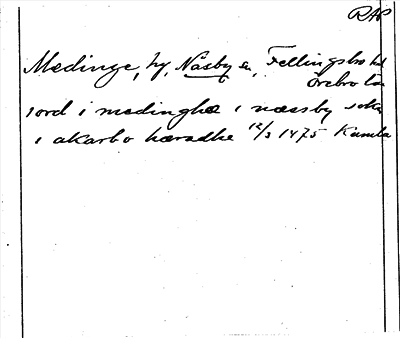 RAP
Medinge, by, Näsby sn, Fellingsbro hd
Örebro län
jord i medinghæ i næssby sokn
i akarbo hæradhe 12/3 1475 Kumla